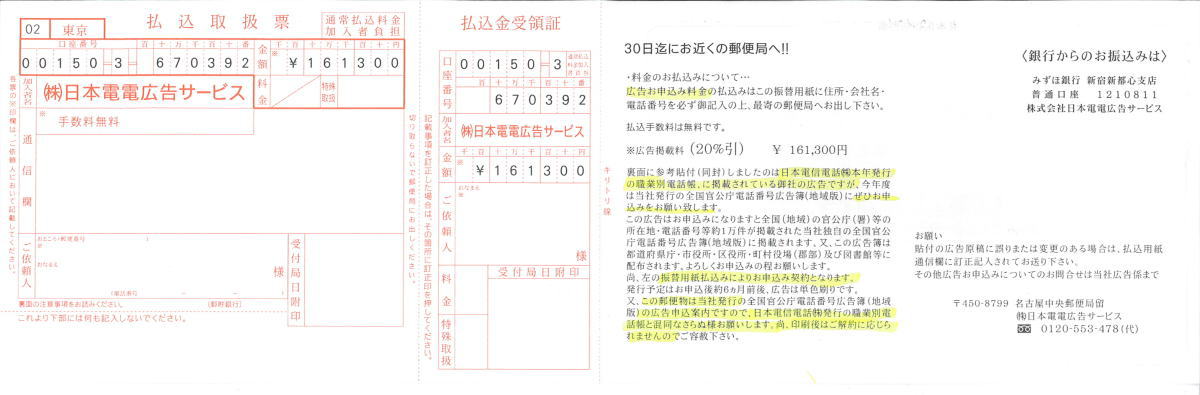 02 東京
払込取扱票
通常払込料金
加入者負担
口座番号 百十万千百十番
00150-3-670392
金額 千百十万千百十円
※ ¥161300
加入者名 ㈱日本電電広告サービス
料金
特殊取扱
※ 手数料無料
通信欄
ご依頼人
おところ(郵便番号 )
おなまえ
様
(電話番号 - - )
受付局日附印
裏面の注意事項をお読みください。 (郵貯銀行)
これより下部には何も記入しないでください。
各票の※印欄は、ご依頼人において記載してください。
切り取らないで郵便局にお出しください。
記載事項を訂正した場合は、その箇所に訂正印を押してください。
払込金受領証
口座番号 百十万千百十番
00150-3
通常払込
料金加入
者負担
百十万千百十番
670392
加入者名 ㈱日本電電広告サービス
金額 千百十万千百十円
※ ¥161300
ご依頼人
おなまえ
※
様
料金
特殊取扱
受付局日附印
キリトリ線
30日迄にお近くの郵便局へ!!
・料金のお払込みについて…
広告お申込み料金の払込みはこの振替用紙に住所・会社名・
電話番号を必ず御記入の上、最寄の郵便局へお出し下さい。
払込手数料は無料です。
※広告掲載料(20%引) ¥ 161,300円
裏面に参考貼付(同封)しましたのは日本電信電話㈱本年発行
の職業別電話帳、に掲載されている御社の広告ですが、今年度
は当社発行の全国官公庁電話番号広告簿(地域版)にぜひお申
込みをお願い致します。
この広告はお申込みになりますと全国(地域)の官公庁(署)等の
所在地・電話番号等約1万件が掲載された当社独自の全国官公
庁電話番号広告簿(地域版)に掲載されます。又、この広告簿は
都道府県庁・市役所・区役所・町村役場(郡部)及び図書館等に
配布されます。よろしくお申込みの程お願いします。
尚、左の振替用紙払込によりお申込み契約となります。
発行予定はお申込後約6ヵ月前後、広告は単色刷りです。
又、この郵便物は当社発行の全国官公庁電話番号広告簿(地域
版)の広告申込案内ですので、日本電信電話㈱発行の職業別電
話帳と混同なさらぬ様お願いします。尚、印刷後はご解約に応じら
れませんのでご容赦下さい。
〈銀行からのお振込みは〉
みずほ銀行 新宿新都心支店
普通口座 1210811
株式会社日本電電広告サービス
お願い
貼付の広告原稿に誤りまたは変更のある場合は、払込用紙
通信欄に訂正記入されてお送り下さい。
その他広告お申込みについてのお問合せは当社広告係まで
〒450-8799 名古屋中央郵便局留
㈱日本電電広告サービス
0120-553-478(代)